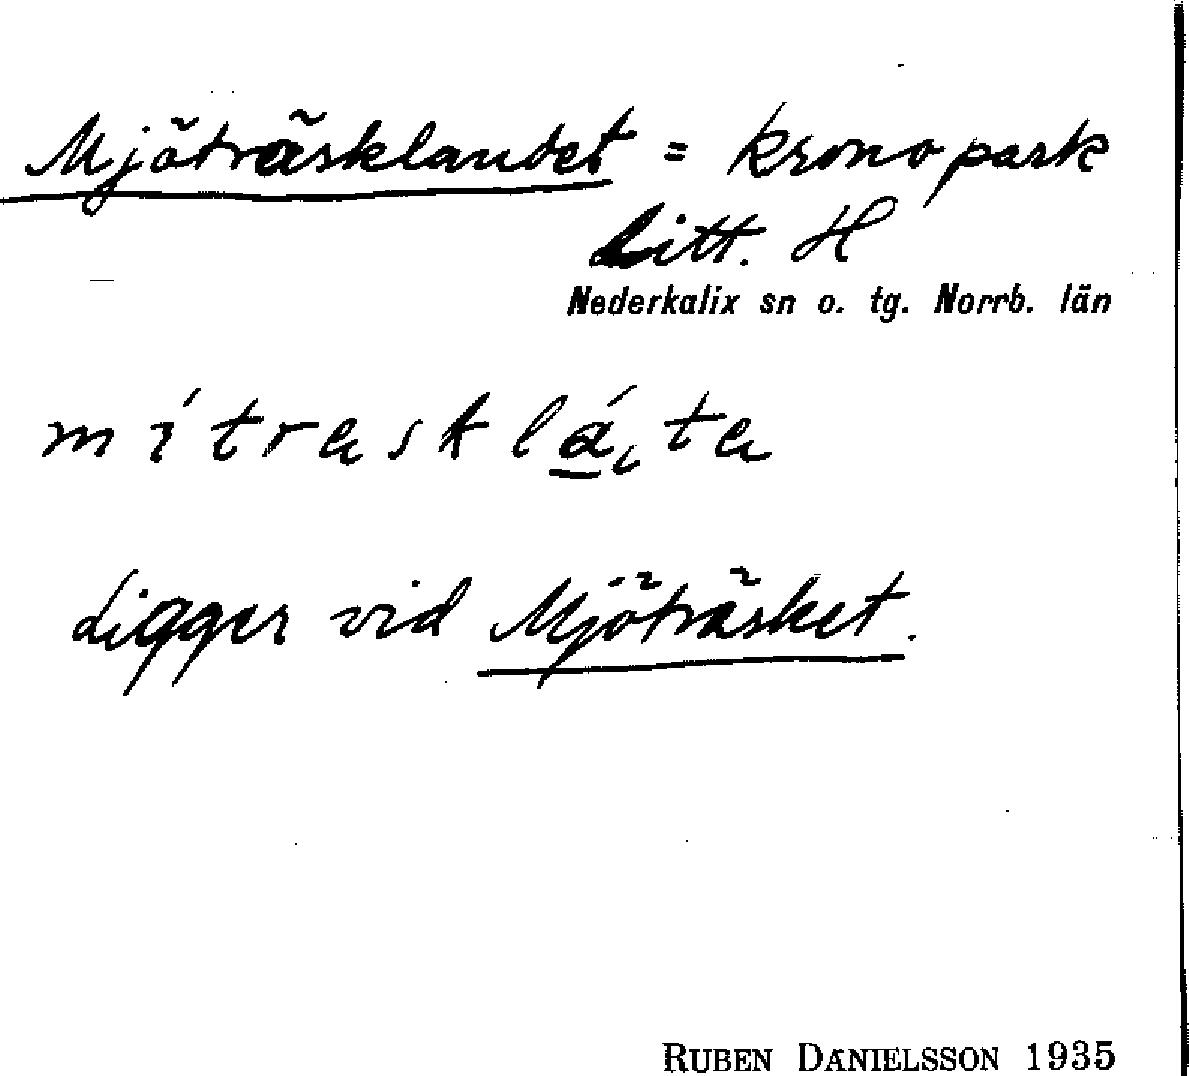 Mjöträsklandet = kronopark
Litt. H
Nederkalix sn o. tg. Norrb. län
Ligger vid Mjöträsket.
RUBEN DANIELSSON 1935